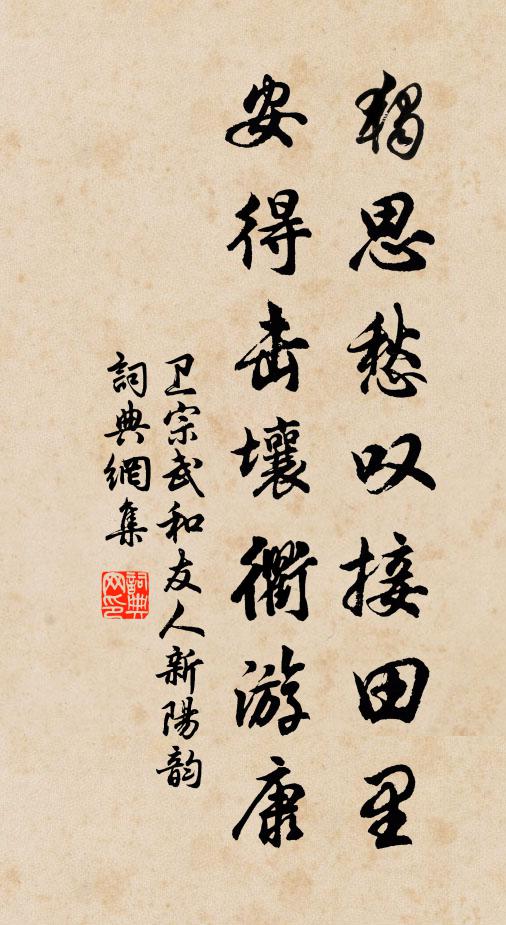 獨思愁叹接田里
安得击壤衢游康
卫宗武和友人新陽韵
詞典網集
詞典网印